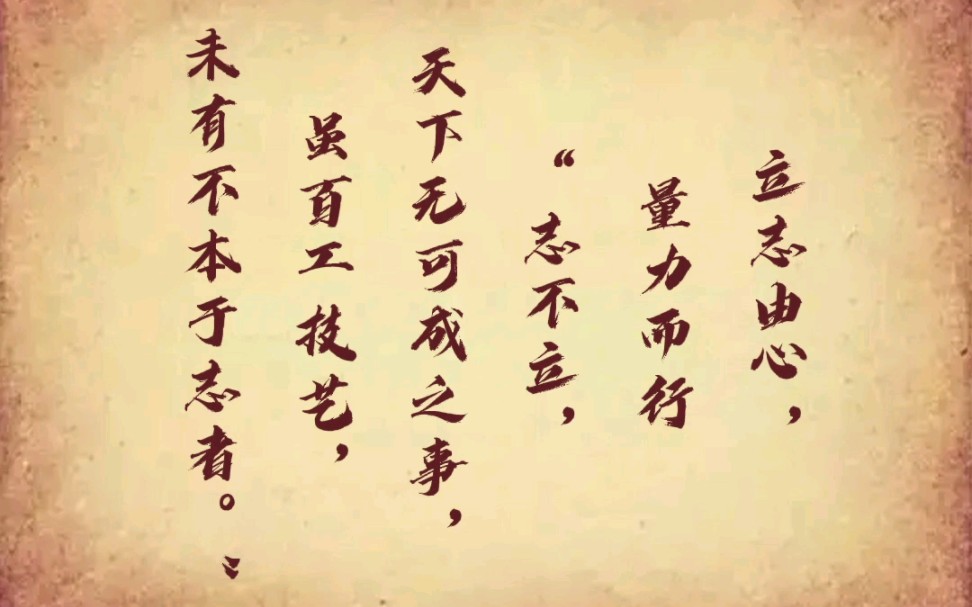 立志由心，
量力而行
“志不立，
天下无可成之事，
虽百工技艺，
未有不本于志者。”